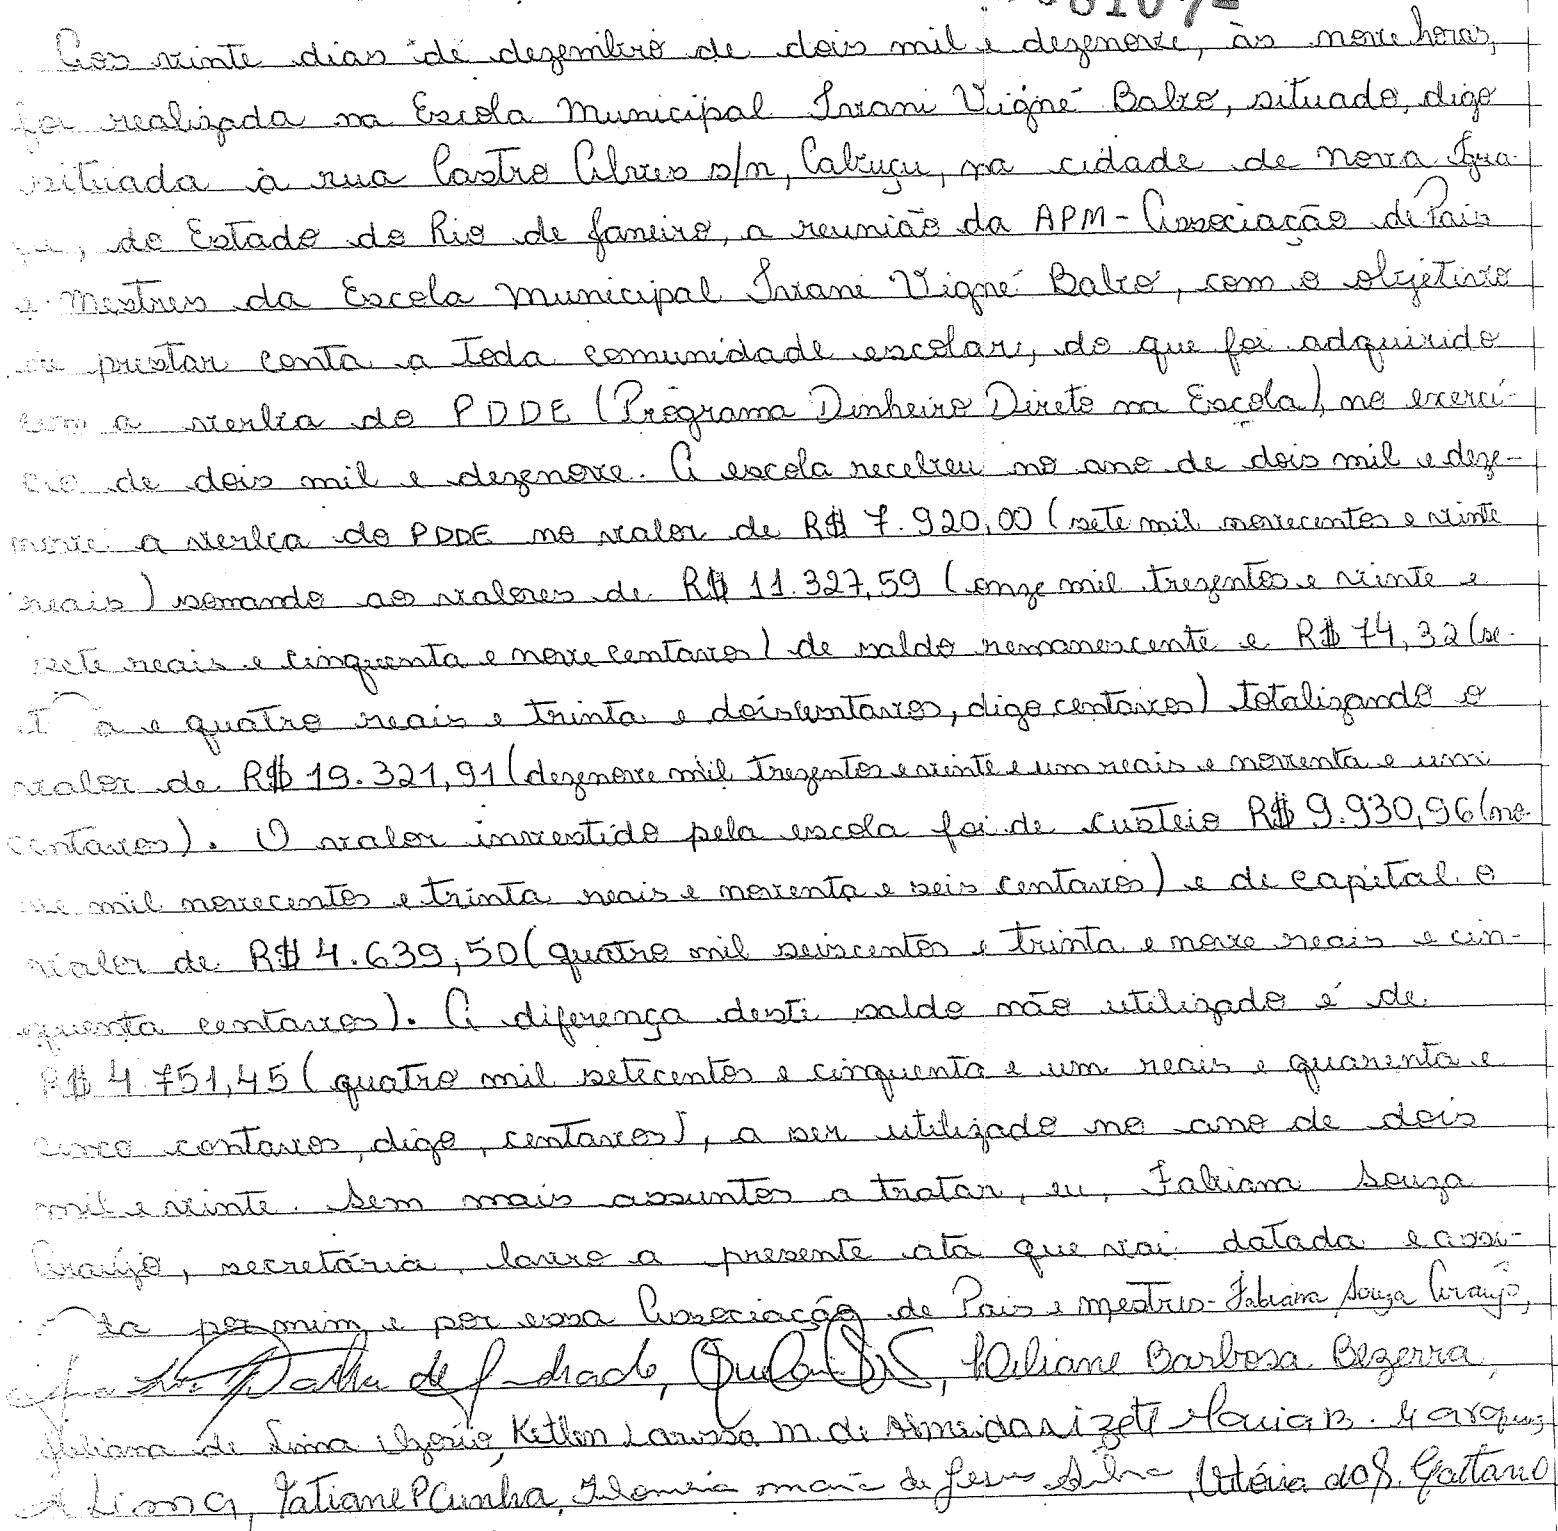 Aos vinte dias de dezembro de dois mil e dezenove, às nove horas,
foi realizada na Escola Municipal Irani Vigné Balzo, situado, digo
situada à rua Castro Alves s/n, Cabuçu, na cidade de Nova Igua-
çu, do Estado do Rio de Janeiro, a reunião da APM - Associação de Pais
e Mestres da Escola Municipal Irani Vigné Balzo, com o objetivo
de prestar conta a toda comunidade escolar, do que foi adquirido
com a verba do PDDE (Programa Dinheiro Direto na Escola), no exercí-
cio de dois mil e dezenove. A escola recebeu no ano de dois mil e deze-
nove a verba do PDDE no valor de R$ 7.920,00 (sete mil novecentos e vinte
reais) somando aos valores de R$ 11.327,59 (onze mil trezentos e vinte e
sete reais e cinquenta e nove centavos) de saldo remanescente e R$ 74,32 (se-
a e quatro reais e trinta e dois centavos, digo centavos) totalizando o
valor de R$ 19.321,91 (dezenove mil trezentos e vinte e um reais e noventa e um
centavos). O valor investido pela escola foi de custeio R$ 9.930,96 (no-
ve mil novecentos e trinta reais e noventa e seis centavos) e de capital o
valor de R$ 4.639,50 (quatro mil seiscentos e trinta e nove reais e cin-
quenta centavos). A diferença deste saldo não utilizado é de
R$ 4.751,45 (quatro mil setecentos e cinquenta e um reais e quarenta e
cinco contavos, digo, centavos), a ser utilizado no ano de dois
mil e vinte. Sem mais assuntos a tratar, eu, Fabiana Souza
Araújo, secretária, lavro a presente ata que vai datada e assi-
da por mim e por essa Associação de Pais e Mestres - Fabiana Souza Araújo,
de Andrade, Keliane Barbosa Bezerra,
Juliana de Lima, Ketlen Larissa M. de Almeida, Lizete Maria B. Marques
Lima, Tatiane P Cunha, Filomena Maria de Jesus Silva, Vitória da S. Gaetano